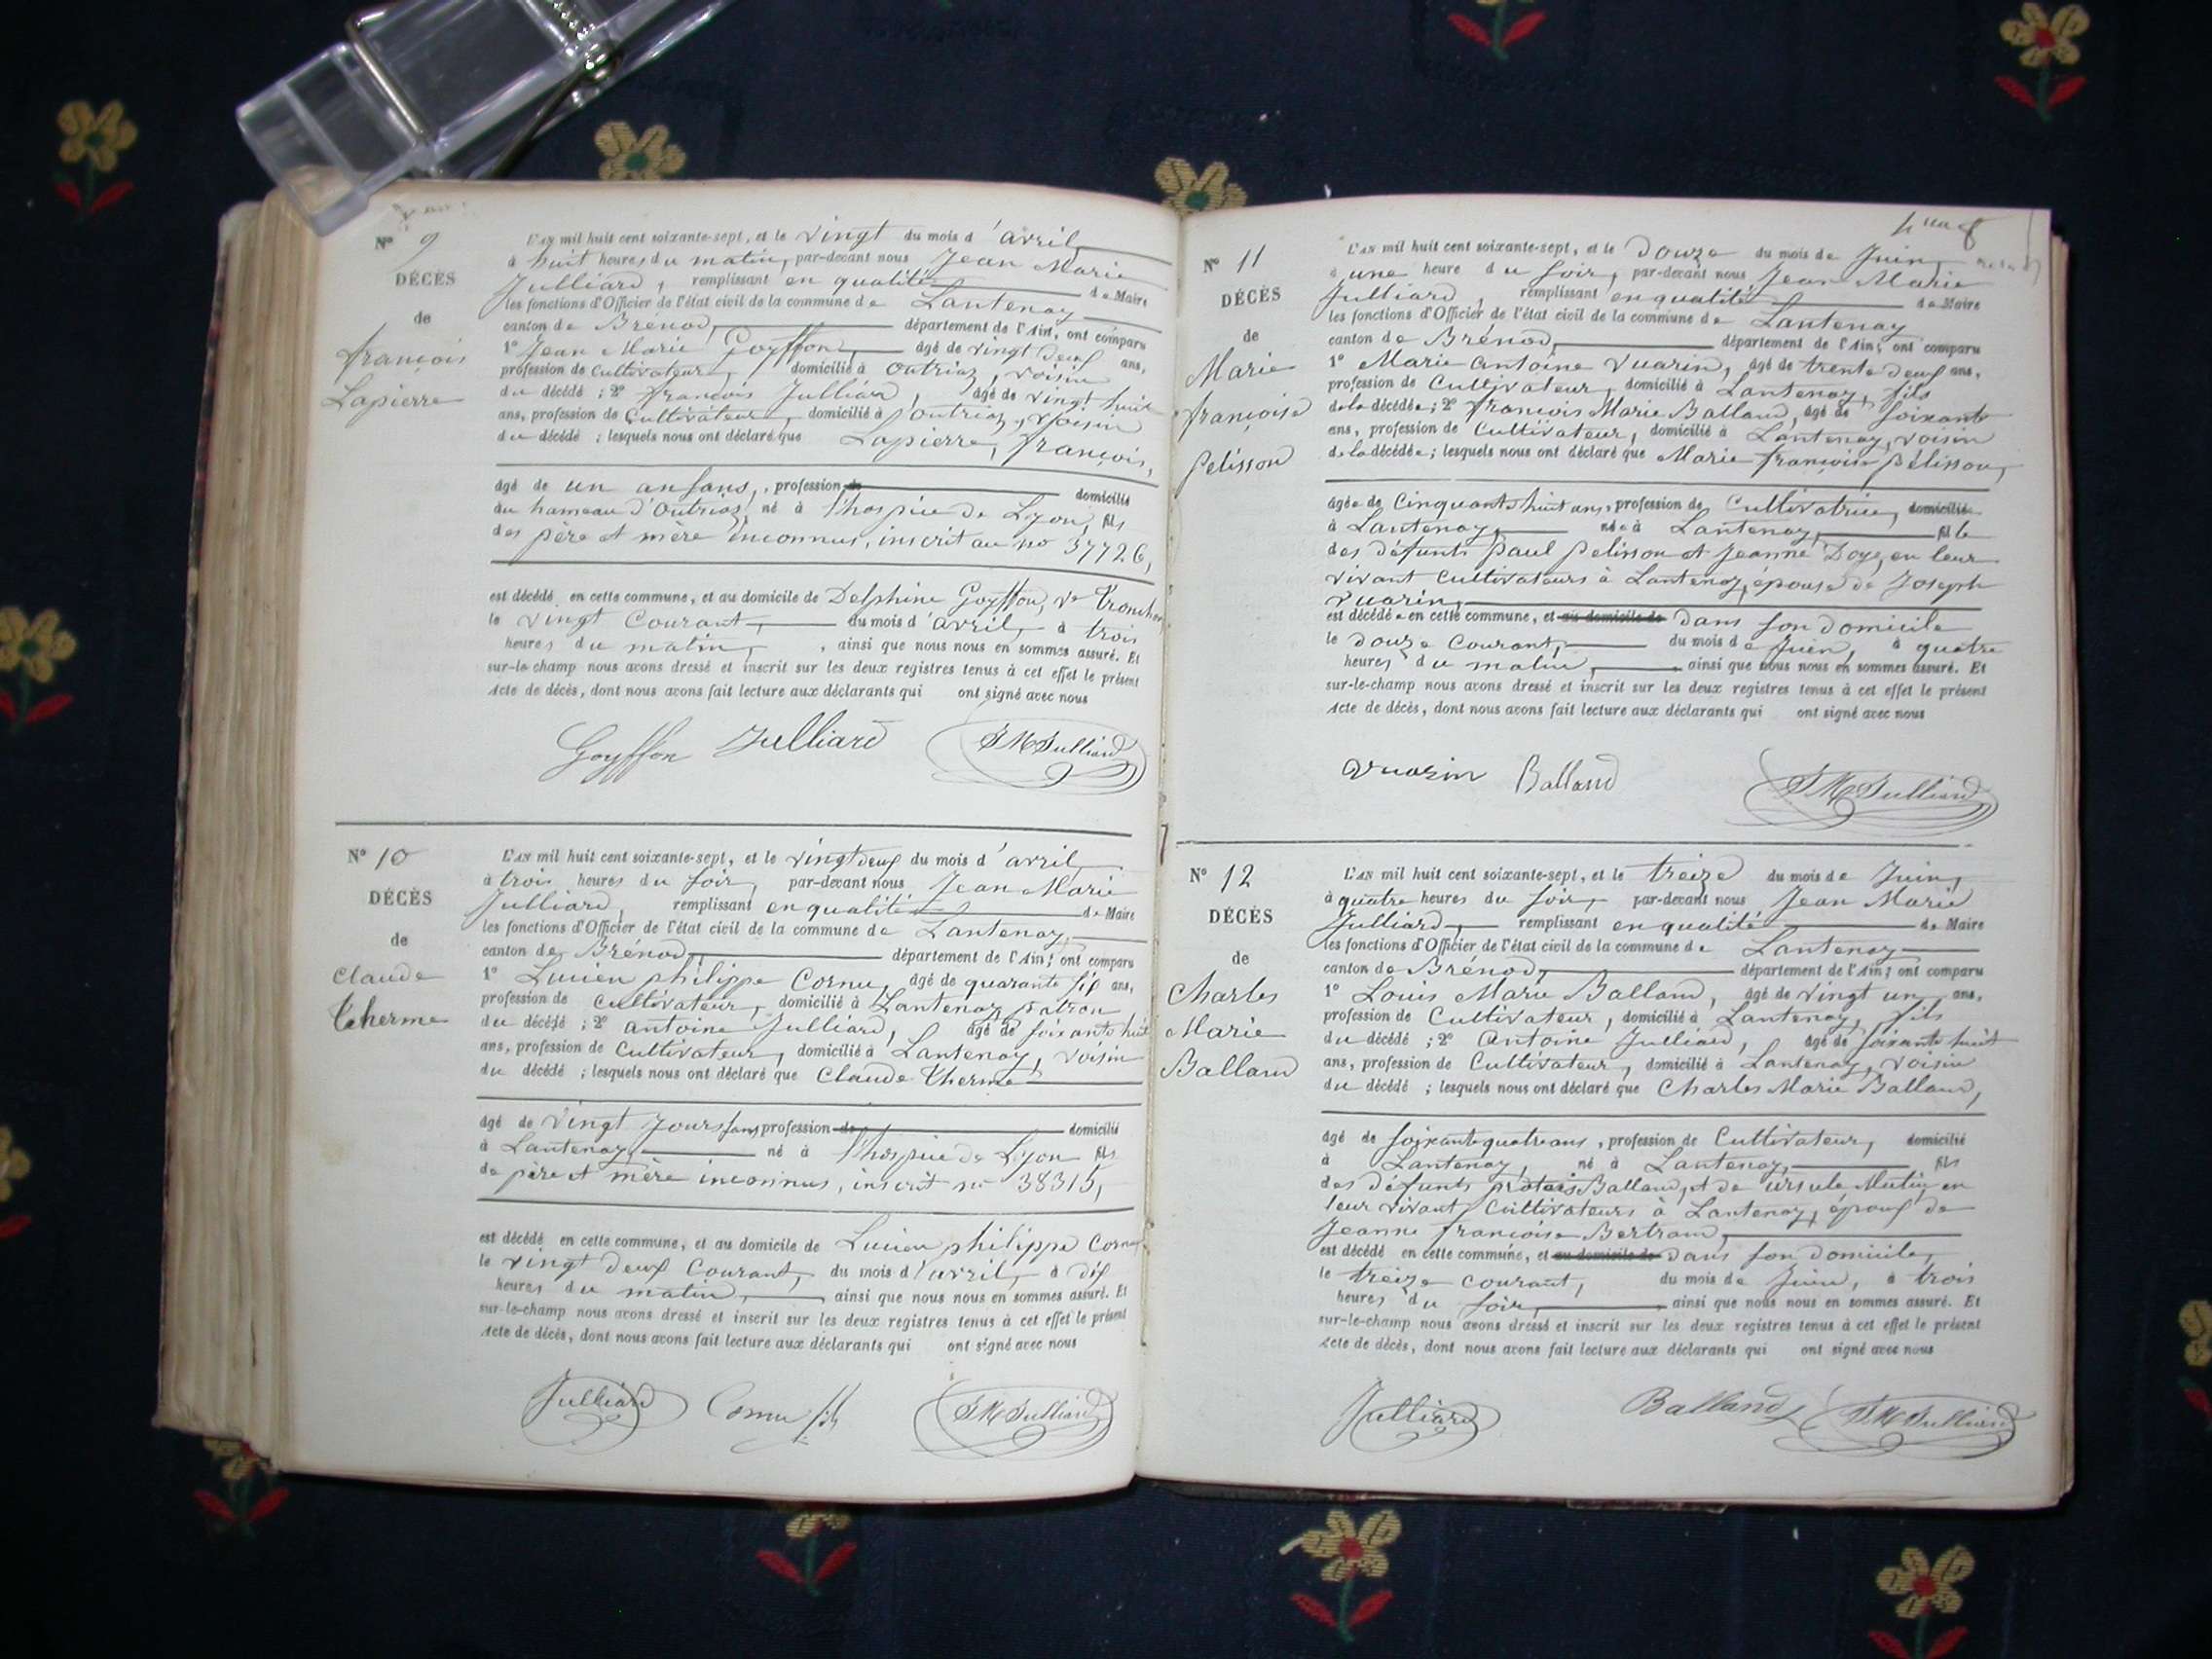 N° 9
DÉCÈS
de
françois
Lapierre
L'AN mil huit cent soixante-sept, et le vingt du mois d'avril,
à huit heures du matin, par-devant nous Jean Marie
Julliard, remplissant en qualité de Maire
les fonctions d'Officier de l'état civil de la commune de Lantenay
canton de Brénod, département de l'Ain, ont comparu
1° Jean Marie Goyffon, âgé de vingt deux ans,
profession de Cultivateur, domicilié à Outriaz, voisin
du décédé ; 2° françois Julliard, âgé de vingt huit
ans, profession de Cultivateur, domicilié à Outriaz, voisin
du décédé ; lesquels nous ont déclaré que Lapierre, françois,
âgé de un an sans, profession de domicilié
au hameau d'Outriaz, né à l'hospice de Lyon, fils
des père et mère inconnus, inscrit au no 37726,
est décédé en cette commune, et au domicile de Delphine Goyffon, Ve
le vingt Courant, du mois d'avril, à trois
heures du matin, , ainsi que nous nous en sommes assuré. Et
sur-le champ nous avons dressé et inscrit sur les deux registres tenus à cet effet le présent
Acte de décès, dont nous avons fait lecture aux déclarants qui ont signé avec nous
Goyffon Julliard JMJulliard
N° 10
DÉCÈS
de
Claude
Therme
L'AN mil huit cent soixante-sept, et le vingt deux du mois d'avril,
à trois heures du soir, par-devant nous Jean Marie
Julliard, remplissant en qualité de Maire
les fonctions d'Officier de l'état civil de la commune de Lantenay,
canton de Brénod, département de l'Ain; ont comparu
1° Lucien philippe Cornu, âgé de quarante six ans,
profession de Cultivateur, domicilié à Lantenay, patron
du décédé ; 2° antoine Julliard, âgé de soixante huit
ans, profession de Cultivateur, domicilié à Lantenay, voisin
du décédé ; lesquels nous ont déclaré que Claude Therme
âgé de vingt jours sans profession de domicilié
à Lantenay, né à l'hospice de Lyon fils
de père et mère inconnus, inscrit no 38315,
est décédé en cette commune, et au domicile de Lucien philippe Cornu
le vingt deux Courant, du mois d'avril, à dix
heures du matin, ainsi que nous nous en sommes assuré. Et
sur-le-champ nous avons dressé et inscrit sur les deux registres tenus à cet effet le présent
Acte de décès, dont nous avons fait lecture aux déclarants qui ont signé avec nous
Julliard Cornu JMJulliard
N° 11
DÉCÈS
de
Marie
françoise
Pelisson
L'AN mil huit cent soixante-sept, et le Douze du mois de Juin,
à une heure du soir, par-devant nous Jean Marie
Julliard, remplissant en qualité de Maire
les fonctions d'Officier de l'état civil de la commune de Lantenay
canton de Brénod, département de l'Ain; ont comparu
1° Marie antoine Vuarin, âgé de trente deux ans,
profession de Cultivateur, domicilié à Lantenay, fils
de la décédée; 2° françois Marie Balland, âgé de soixante
ans, profession de Cultivateur, domicilié à Lantenay, voisin
de la décédée; lesquels nous ont déclaré que Marie françoise Pélisson,
âgée de Cinquante huit ans, profession de Cultivatrice, domiciliée
à Lantenay, née à Lantenay, fille
des défunts paul pelisson et Jeanne Doye, en leur
vivant Cultivateurs à Lantenay, épouse de Joseph
Vuarin,
est décédée en cette commune, et au domicile de Dans son Domicile
le Douze Courant, du mois de Juin, à quatre
heures du matin, ainsi que nous nous en sommes assuré. Et
sur-le-champ nous avons dressé et inscrit sur les deux registres tenus à cet effet le présent
Acte de décès, dont nous avons fait lecture aux déclarants qui ont signé avec nous
Vuarin Balland JMJulliard
N° 12
DÉCÈS
de
Charles
Marie
Balland
L'AN mil huit cent soixante-sept, et le treize du mois de Juin,
à quatre heures du soir, par-devant nous Jean Marie
Julliard, remplissant en qualité de Maire
les fonctions d'Officier de l'état civil de la commune de Lantenay
canton de Brénod, département de l'Ain; ont comparu
1° Louis Marie Balland, âgé de vingt un, ans,
profession de Cultivateur, domicilié à Lantenay, fils
du décédé ; 2° Antoine Julliard, âgé de soixante huit
ans, profession de Cultivateur, domicilié à Lantenay, voisin
du décédé ; lesquels nous ont déclaré que Charles Marie Balland,
âgé de soixante quatre ans, profession de Cultivateur, domicilié
à Lantenay, né à Lantenay, fils
des défunts protais Balland, et de ursule Mutin, en
leur vivant Cultivateurs à Lantenay, époux de
Jeanne françoise Bertrand,
est décédé en cette commune, et au domicile de Dans son Domicile,
le treize courant, du mois de Juin, à trois
heures du soir, ainsi que nous nous en sommes assuré. Et
sur-le-champ nous avons dressé et inscrit sur les deux registres tenus à cet effet le présent
Acte de décès, dont nous avons fait lecture aux déclarants qui ont signé avec nous
Julliard Balland JMJulliard